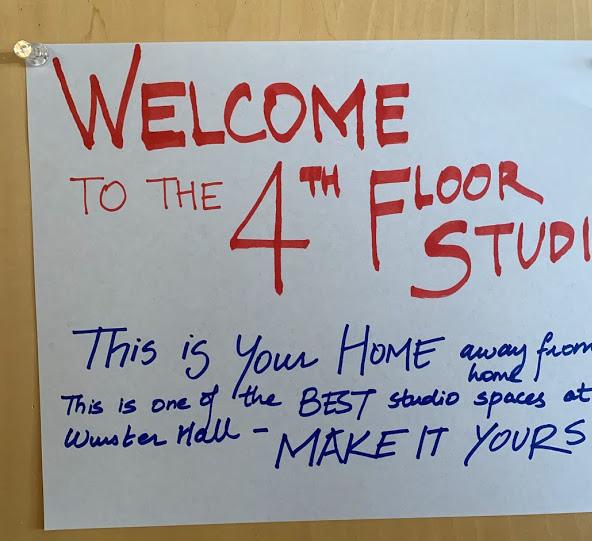 WELCOME
TO THE 4TH FLOOR
STUDI
This is your HOME away from
home
This is one of the BEST studio spaces at
Wurster Hall - MAKE IT YOURS